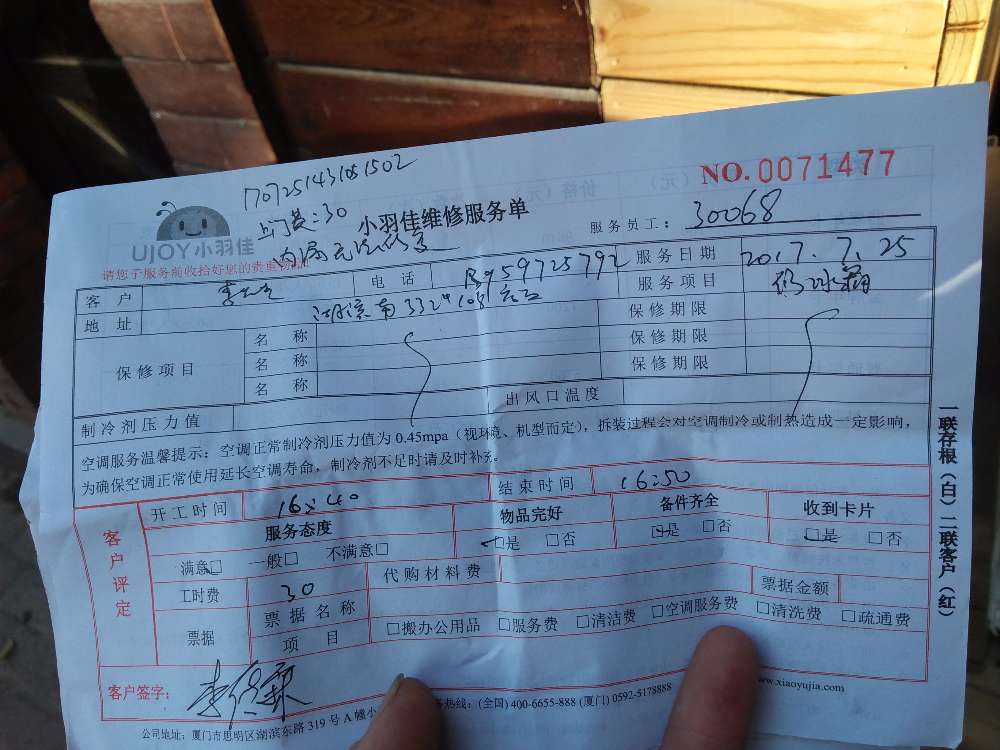 170725143101502
NO.0071477
上门费:30
小羽佳维修服务单
服务员工: 30068
UJOY小羽佳
内漏无法修复
请您于服务前收拾好您的贵重物品
客户 李先生 电话 服务日期 2017.7.25
地址 湖滨南332# 服务项目 修冰箱
保修项目 名称 保修期限
名称 保修期限
名称 保修期限
制冷剂压力值 出风口温度
空调服务温馨提示：空调正常制冷剂压力值为 0.45mpa（视环境、机型而定），拆装过程会对空调制冷或制热造成一定影响，
为确保空调正常使用延长空调寿命，制冷剂不足时请及时补充。
客户评定 开工时间 16:40 结束时间 16:50
服务态度 物品完好 备件齐全 收到卡片
满意□ 一般□ 不满意□ □是 □否 □是 □否 □是 □否
工时费 30 代购材料费 票据金额
票据 票据名称
项目 □搬办公用品 □服务费 □清洁费 □空调服务费 □清洗费 □疏通费
客户签字：
热线：(全国) 400-6655-888 (厦门) 0592-5178888 www.xiaoyujia.com
公司地址：厦门市思明区湖滨东路 319 号 A 幢
一联存根（白）二联客户（红）